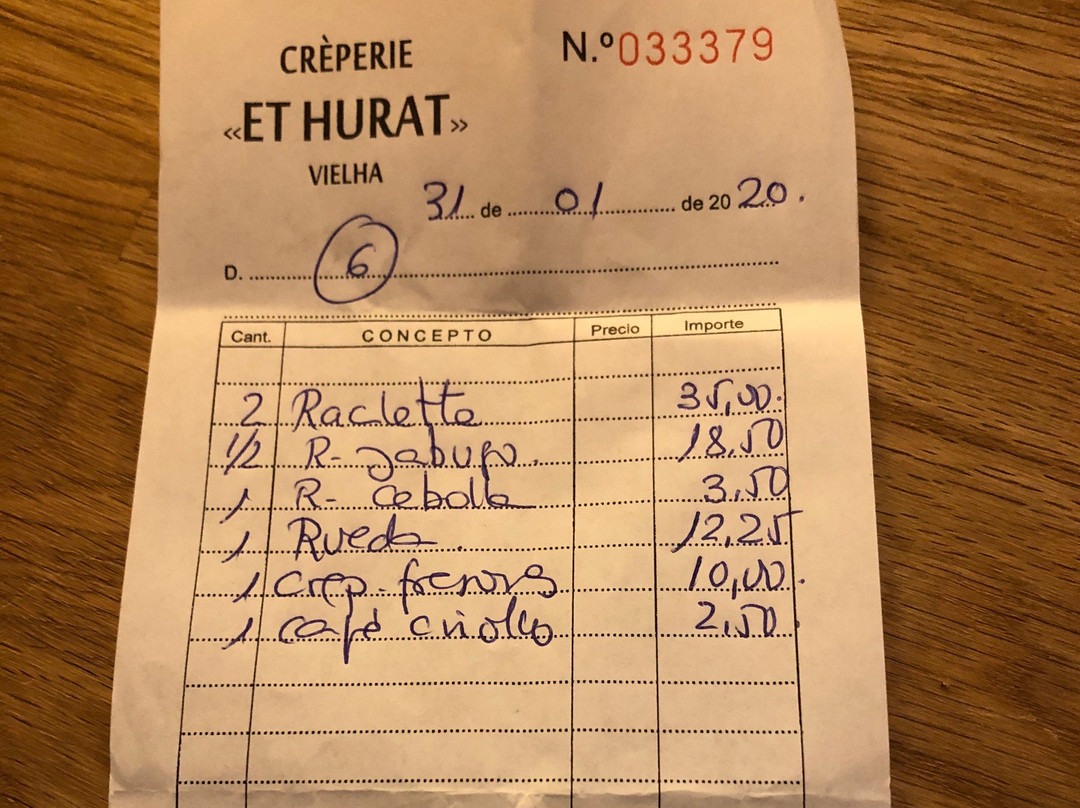 CRÈPERIE
N.º033379
«ET HURAT»
VIELHA
31 de 01 de 2020.
D. 6
Cant. CONCEPTO Precio Importe
2 Raclette 35,00.
1/2 R- Jabugo. 18,50
1 R- cebolla 3,50
1 Rueda. 12,25
1 Crep. 10,00.
1 café criollo 2,50